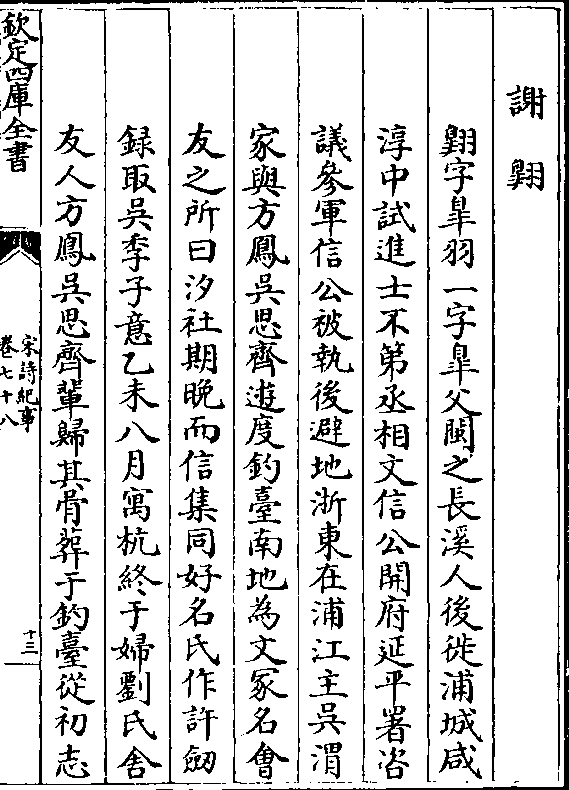 謝翺
翺字臯羽一字臯父閩之長溪人後徙浦城咸
淳中試進士不第丞相文信公開府延平署咨
議參軍信公被執後避地浙東在浦江主吳渭
家與方鳳吳思齊遊度釣臺南地為文冢名會
友之所曰汐社期晚而信集同好名氏作許劔
録取吳季子意乙未八月寓杭終于婦劉氏舍
友人方鳳吳思齊輩歸其骨葬于釣臺從初志
欽定四庫全書
宋詩紀事
卷七十八
十三